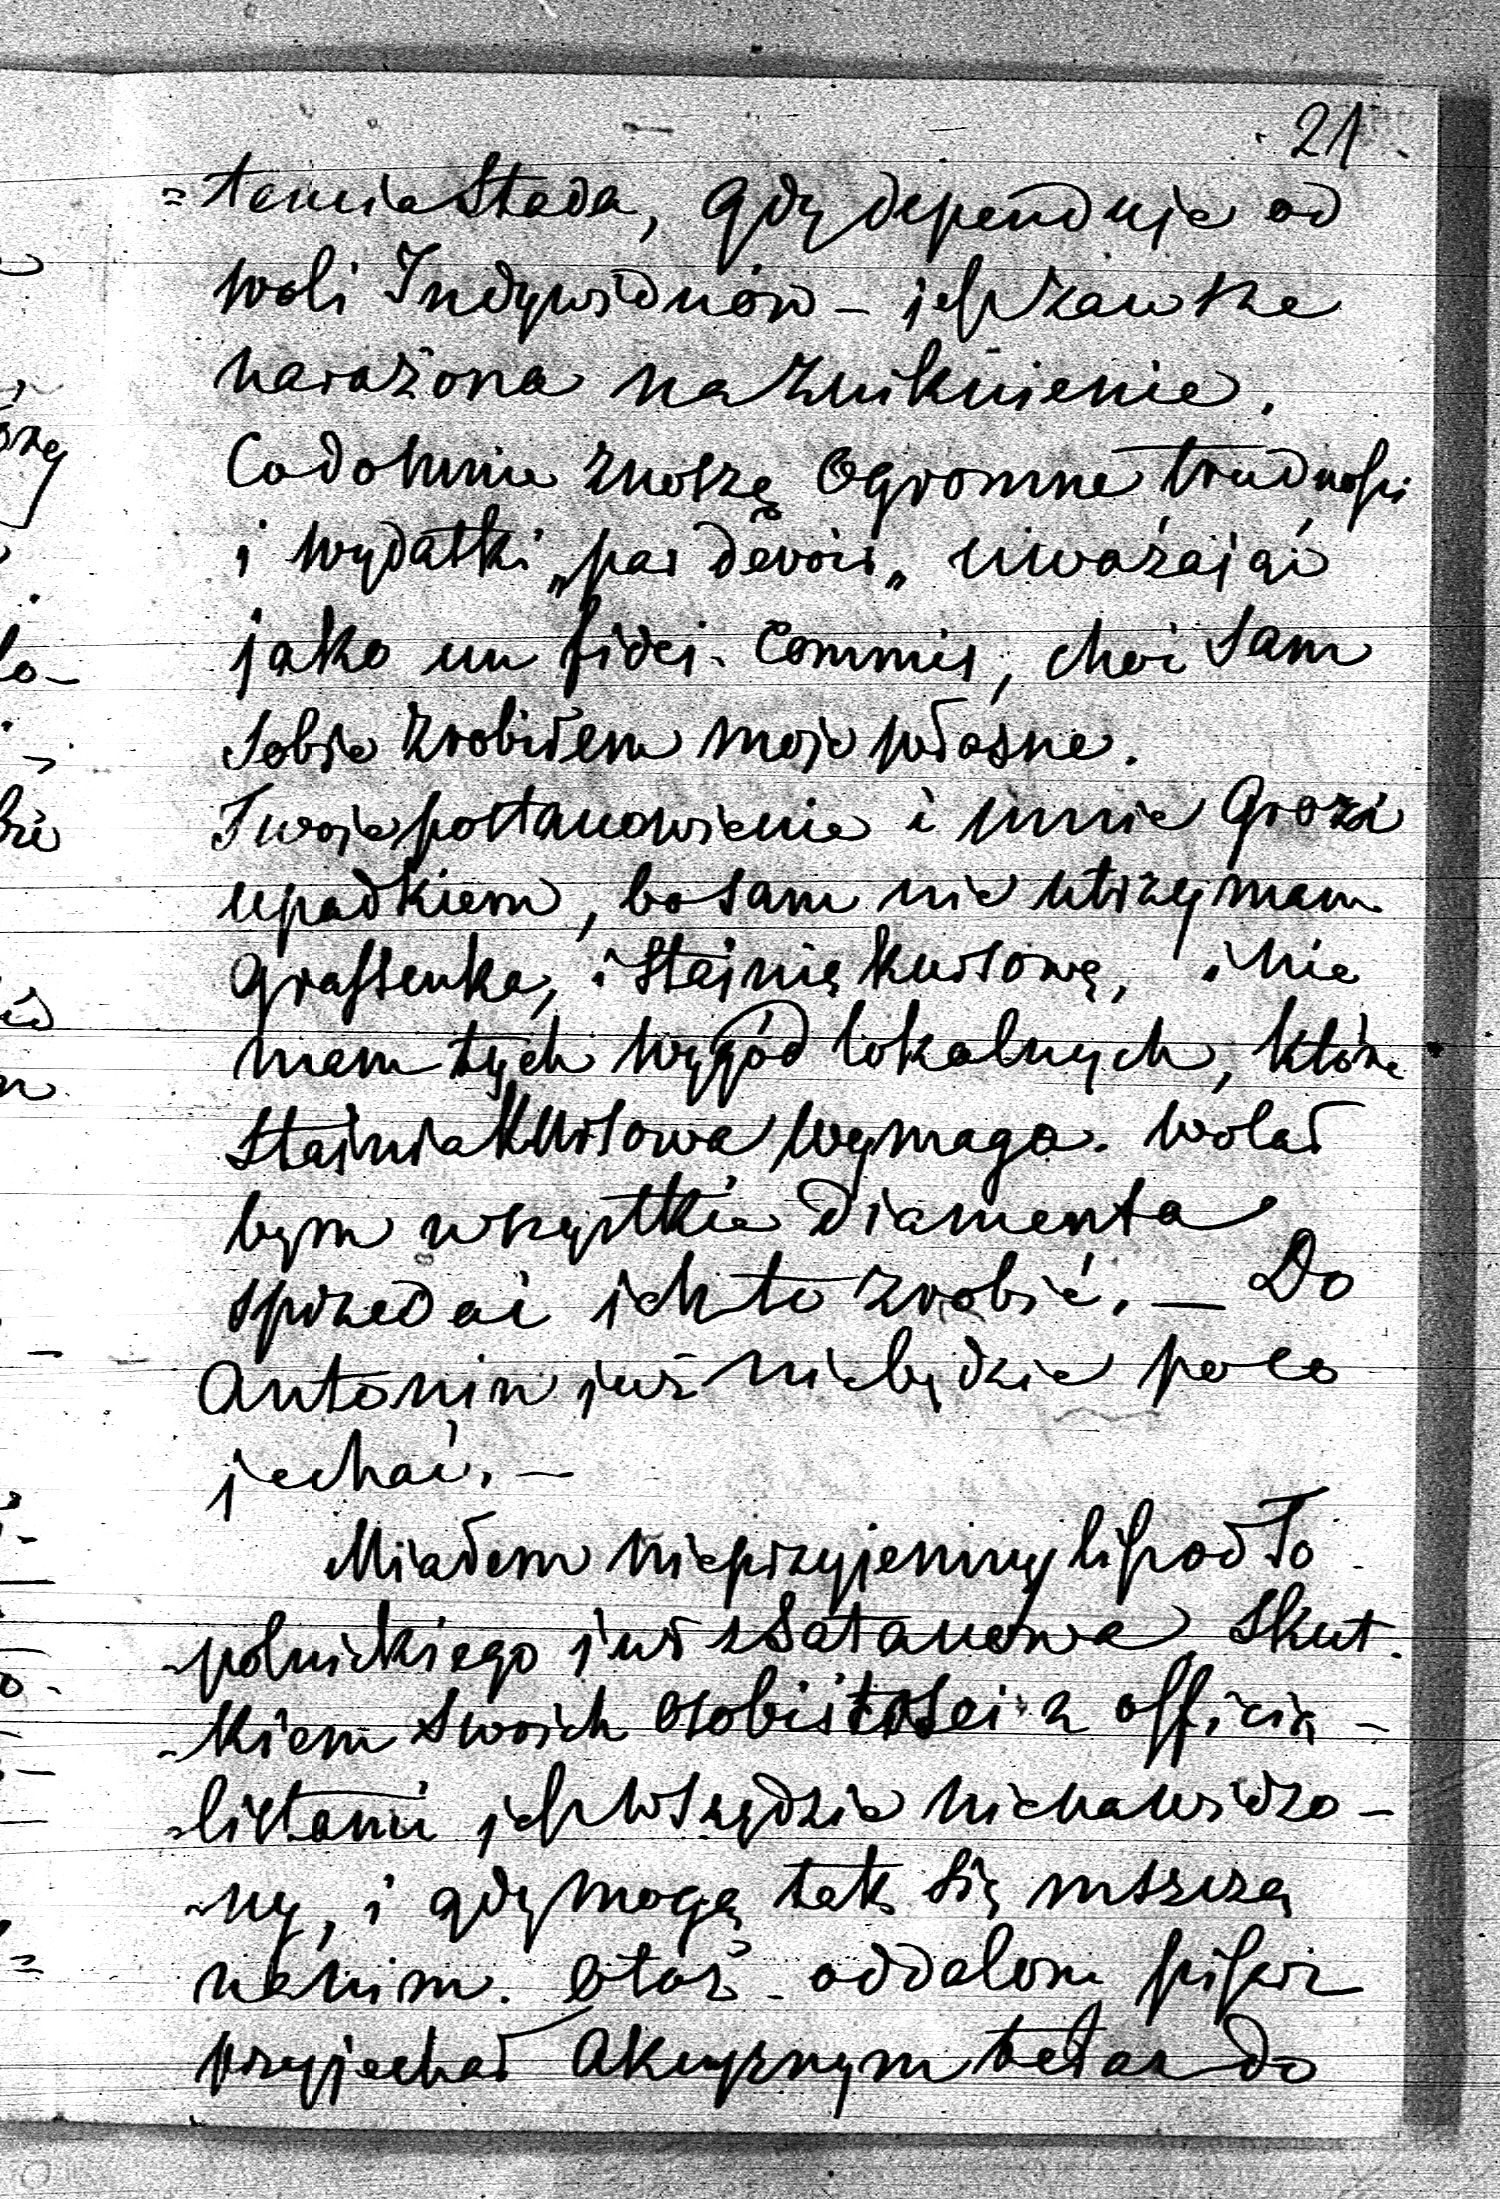 21
=tamia Stada, gdy dependuje od
woli Indywiduów – jest zawsze
narażona na zniknienie.
Co do mnie znoszę ogromne trudności
i wydatki „par devoir„ uważając
jako un fidei-commis, choć sam
sobie zrobiłem moje własne.
Twoje postanowienie i mnie grozi
upadkiem, bo sam nie utrzymam
Grafsenka, i Stajnię kursową, i nie
mam tych wygód lokalnych, które
Stajnia Kursowa wymaga. Wolał
bym wszystkie diamenta
sprzedać jak to zrobić. — Do
Antonin już nie będzie po co
jechać. —
Miałem nieprzyjemny list od To
-polnickiego już z Satanowa. Skut.
-kiem swoich osobistości z officia-
-listami jest wszędzie nienawidzo-
-ny, i gdy mogą tak się mszczą
na nim. Otoż oddalony pisarz
przyjechał akcyznym do